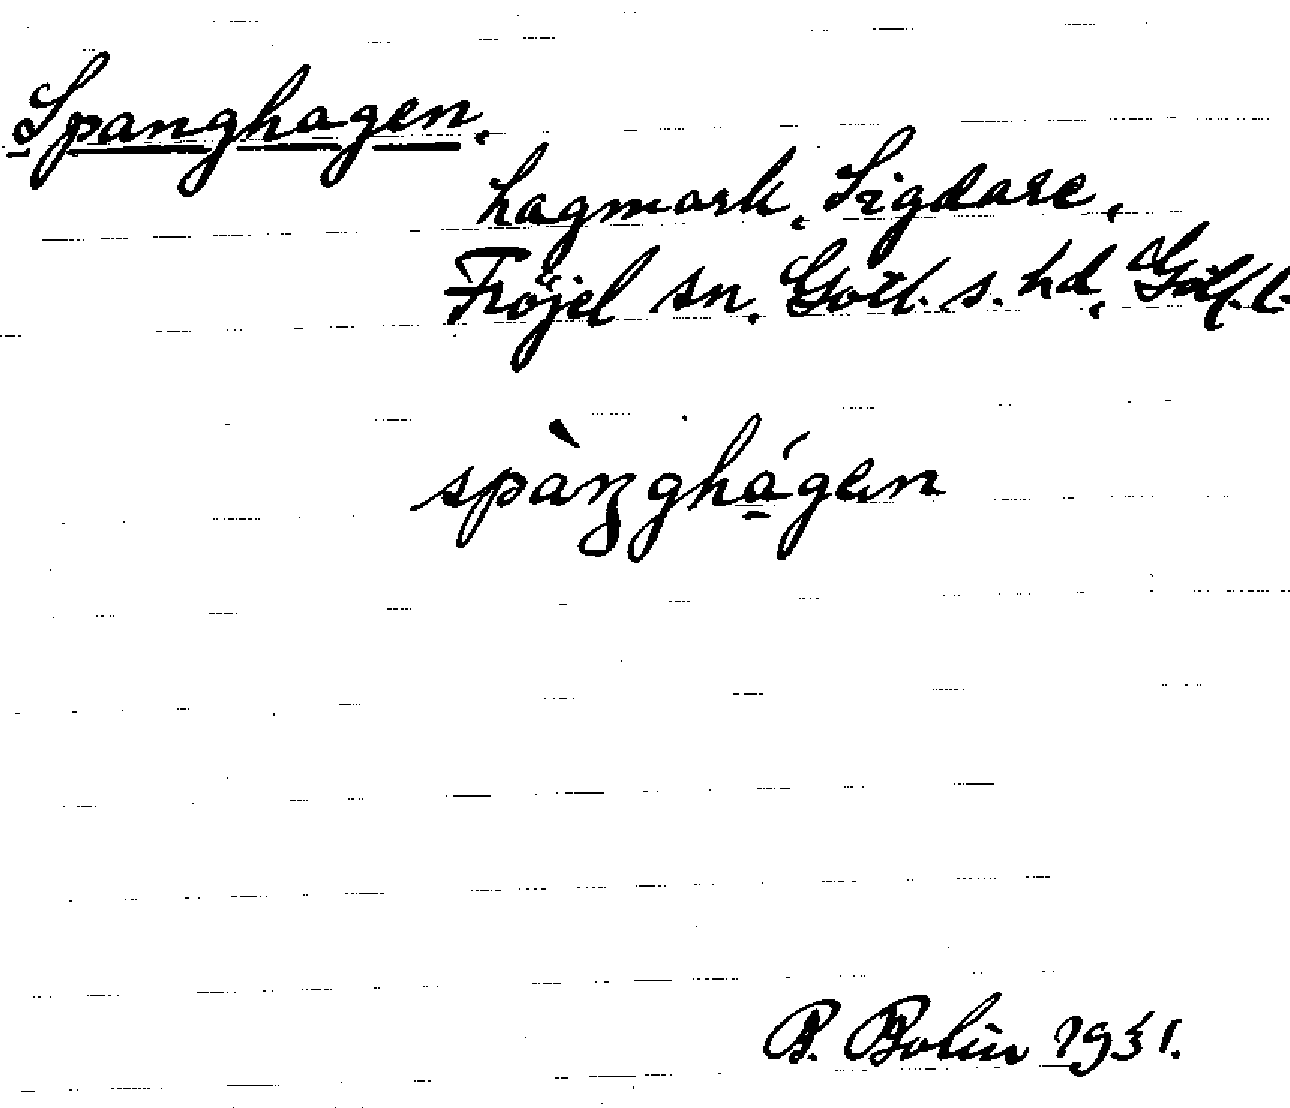 Spanghagen.
hagmark, Sigdare,
Fröjel sn. Gotl. s. hd, Gotl. l.
spàŋghágen
B. Bolin 1931.